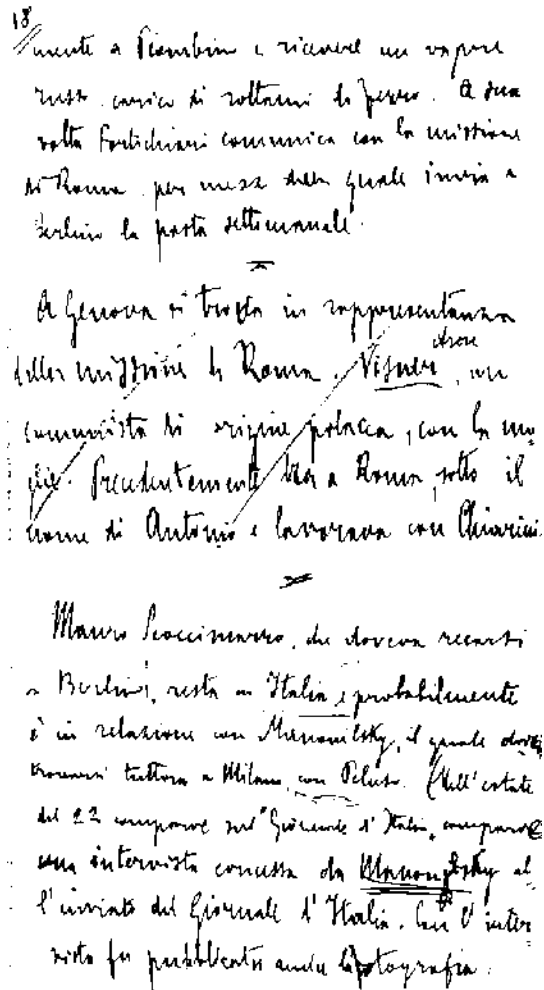 18
mente a Piombino e ricevere un vapore
russo carico di rottami di ferro. A sua
volta Fortichiari comunica con la missione
di Roma per mezzo della quale invia a
Berlino la posta settimanale.
A Genova si trova in rappresentanza
della missione di Roma,
un
comunista di origine polacca, con la mo-
glie. Precedentemente era a Roma sotto il
nome di Antonio e lavorava con Chiarini.
Mauro Scoccimarro, che doveva recarsi
a Berlino, resta in Italia e probabilmente
è in relazione con Manouilsky, il quale dovrà
trovarsi tuttora a Milano, con Peluso. (Nell'estate
del 22 comparve sul "Giornale d'Italia, comparve
una intervista concessa da Manouilsky al-
l'inviato del Giornale d'Italia. Con l'inter-
vista fu pubblicata anche la fotografia.